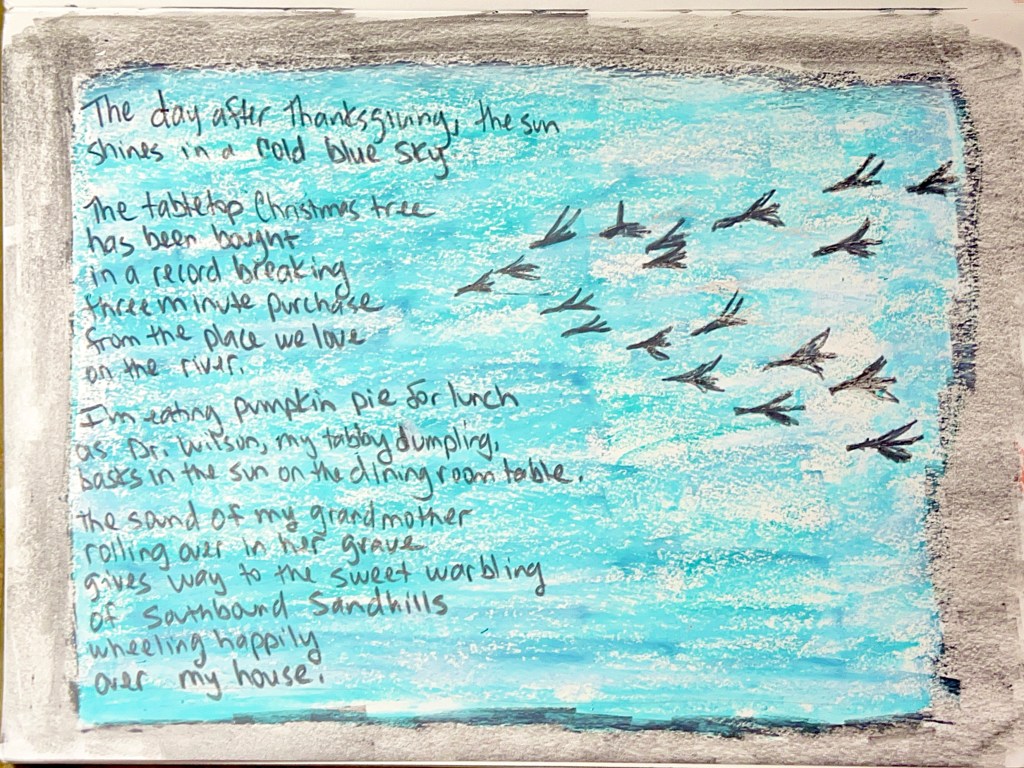 The day after Thanksgiving, the sun
shines in a cold blue sky
The tabletop Christmas tree
has been bought
in a record breaking
three minute purchase
from the place we love
on the river.
I'm eating pumpkin pie for lunch
as Dr. Wilson, my tabby dumpling,
basks in the sun on the dining room table.
the sound of my grandmother
rolling over in her grave
gives way to the sweet warbling
of southbound Sandhills
wheeling happily
over my house.